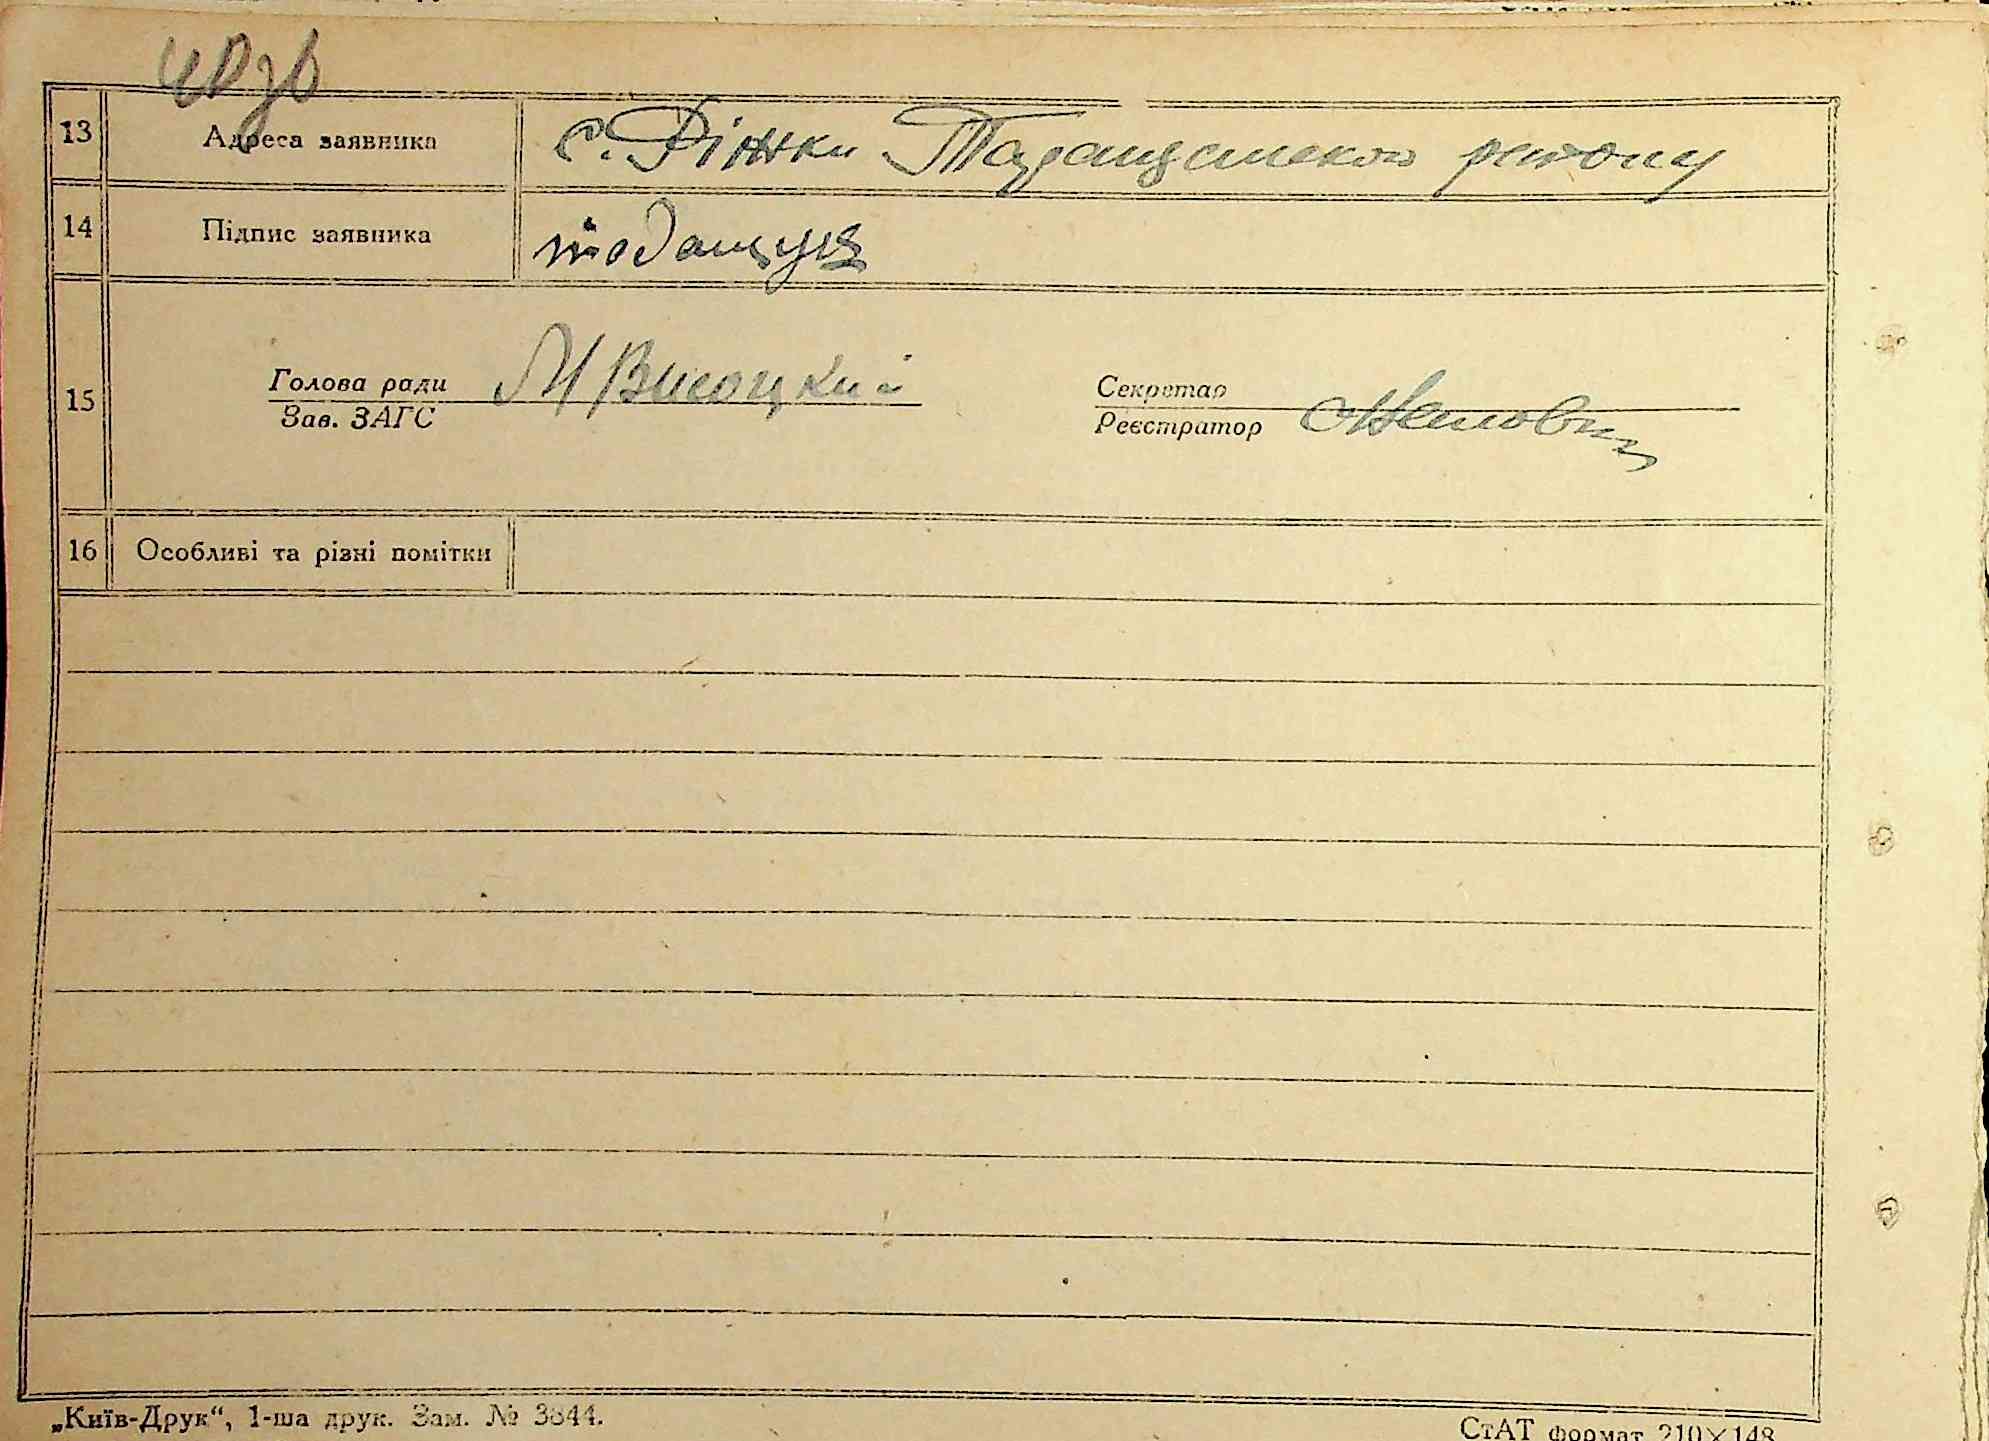 13 Адреса заявника с. Ріжки Таращанського району
14 Підпис заявника
15 Голова ради М Висоцкий Секретар
Зав. ЗАГС Реєстратор
16 Особливі та різні помітки
„Київ-Друк“, 1-ша друк. Зам. № 3844. СтАТ формат 210×148